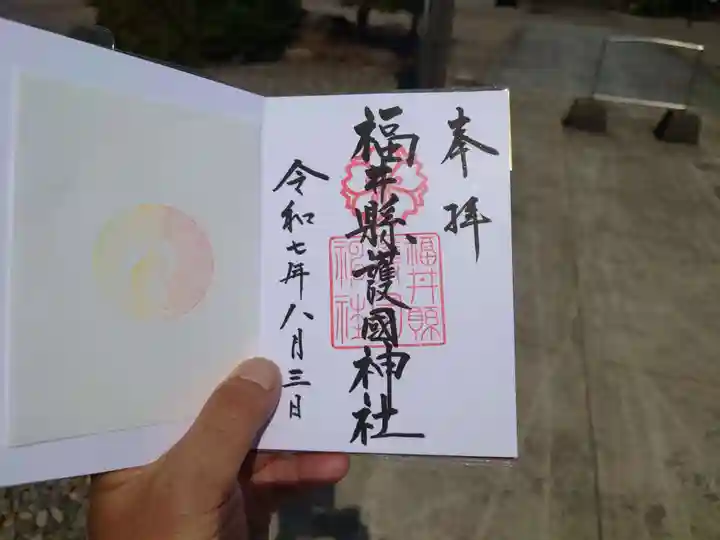 奉拝
福井縣護國神社
福井縣護國神社
令和七年八月三日